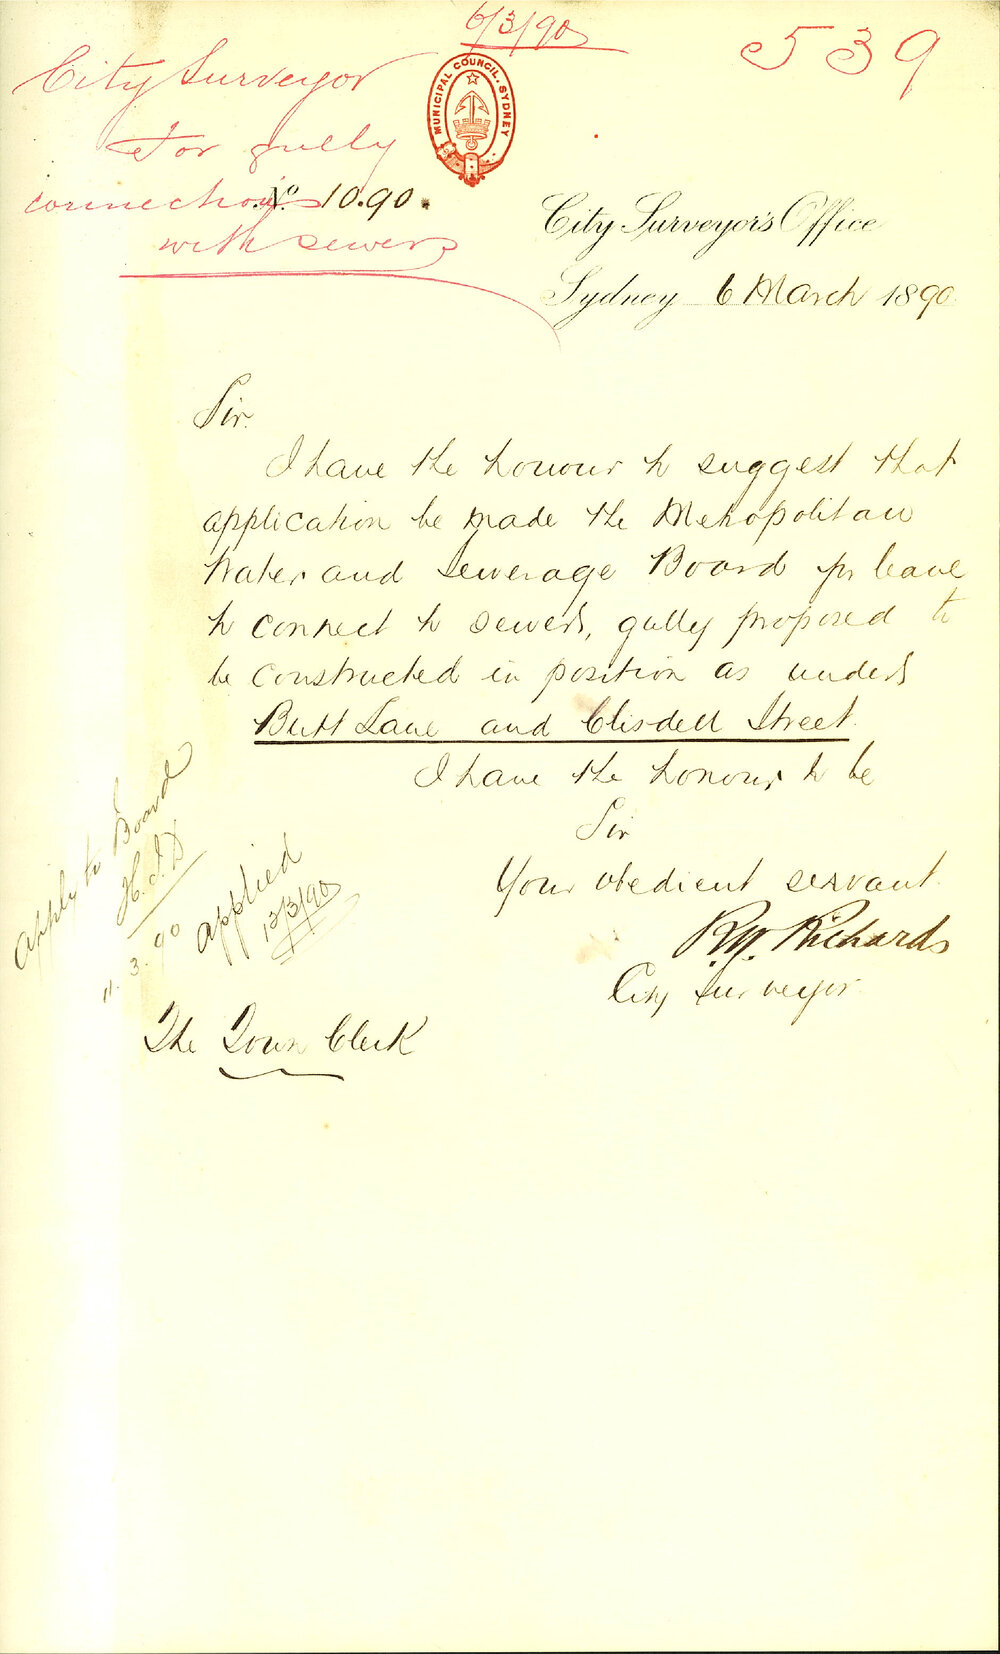 6/3/90
539
City Surveyor
For gully
connections
with sewers
MUNICIPAL COUNCIL. SYDNEY
No. 10.90.
City Surveyor's Office
Sydney 6 March 1890
Sir
I have the honour to suggest that
application be made the Metropolitan
Water and Sewerage Board for leave
to connect to sewers, gully proposed to
be constructed in position as under
Butt Lane and Clisdell Street.
I have the honour to be
Sir
Your obedient servant.
R.W. Richards
City Surveyor.
Apply to Board
H.I.D
11.3.90
applied
12/3/90
The Town Clerk